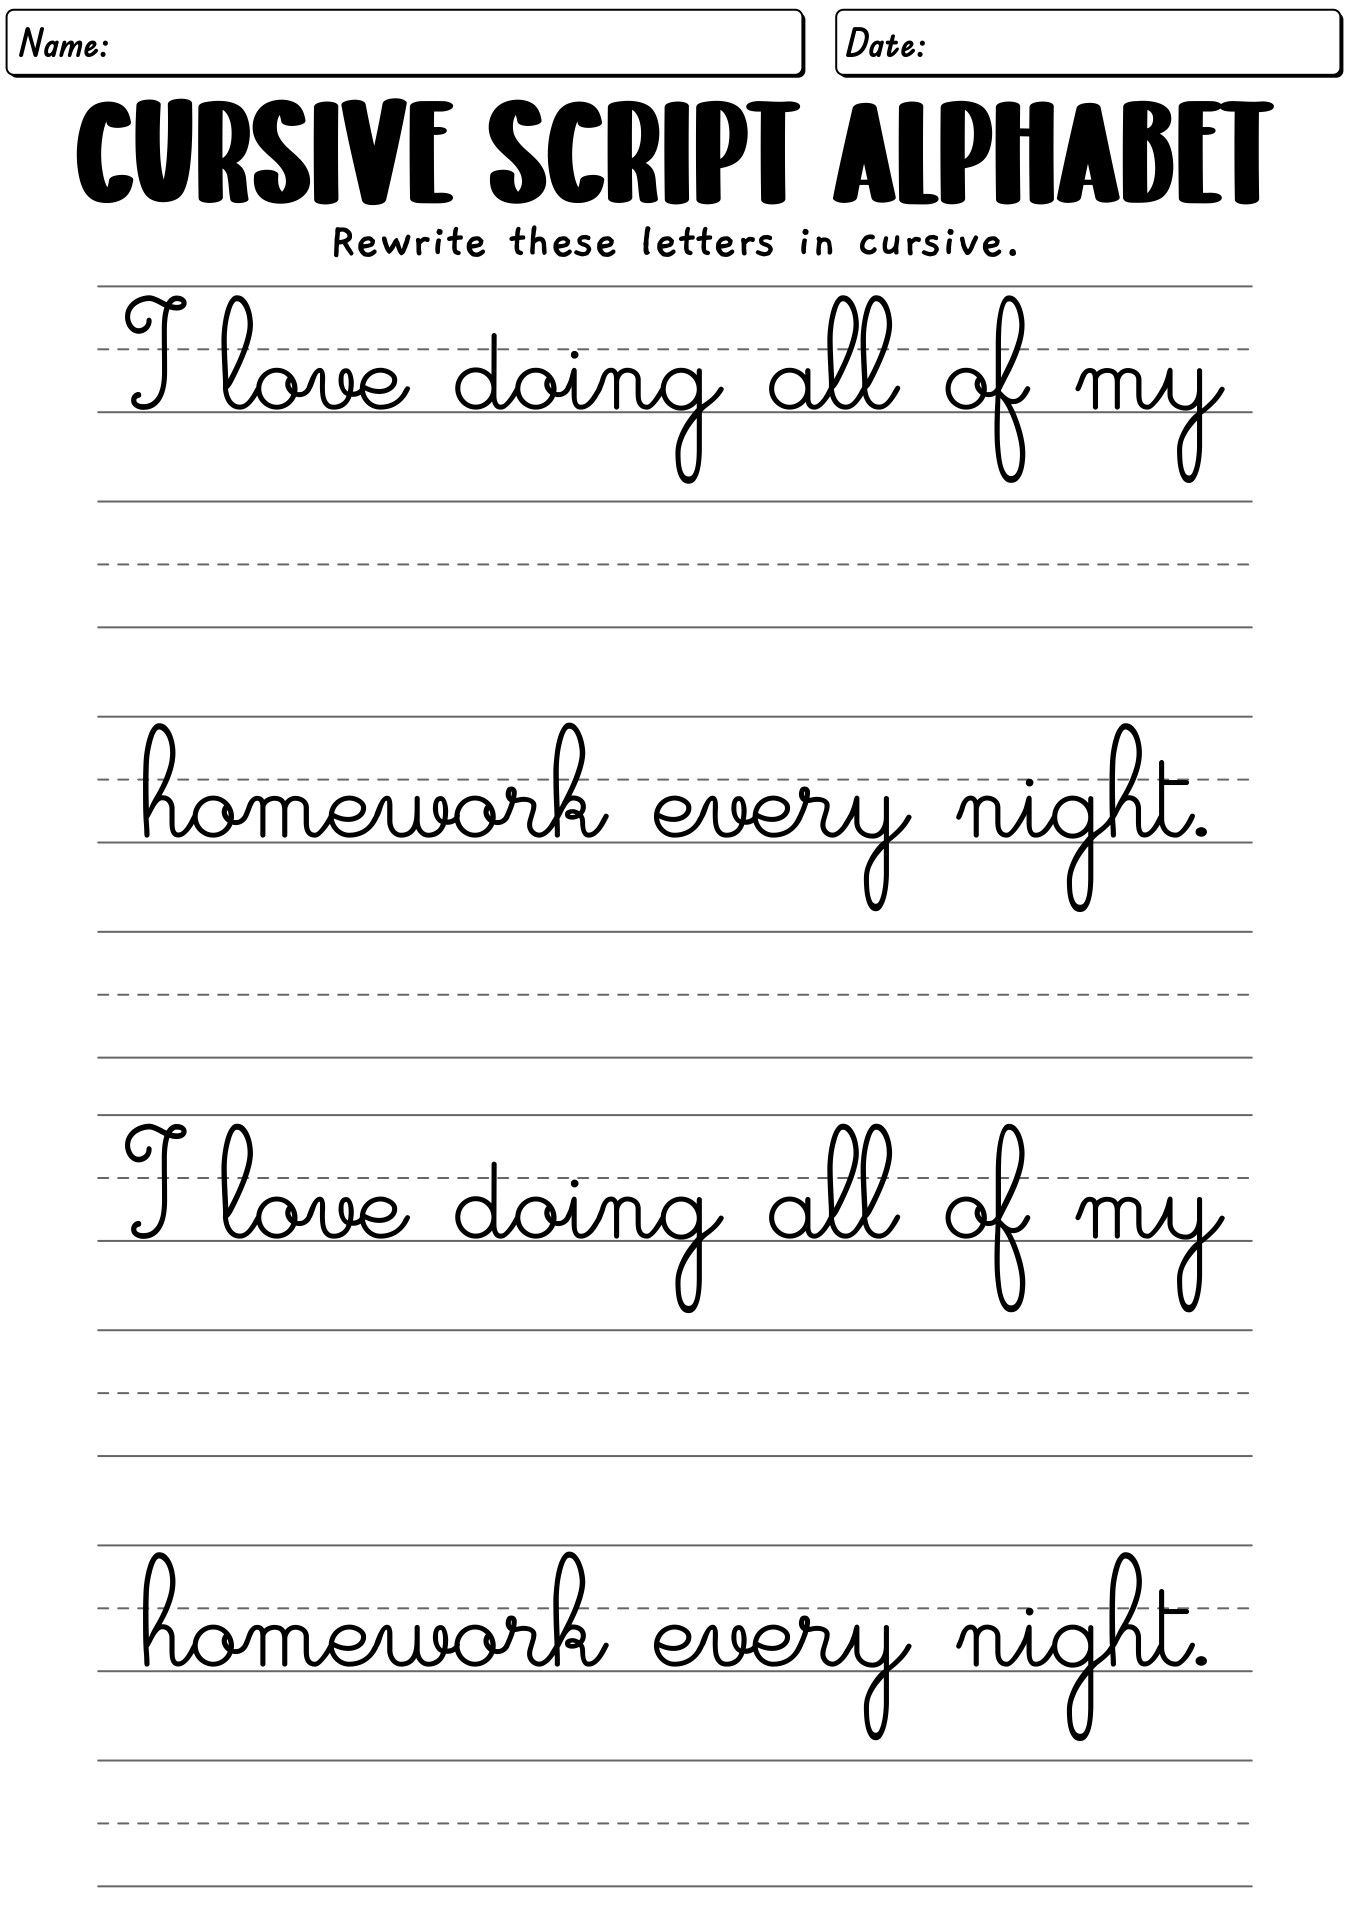 Name:
Date:
CURSIVE SCRIPT ALPHABET
Rewrite these letters in cursive.
I love doing all of my
homework every night.
I love doing all of my
homework every night.